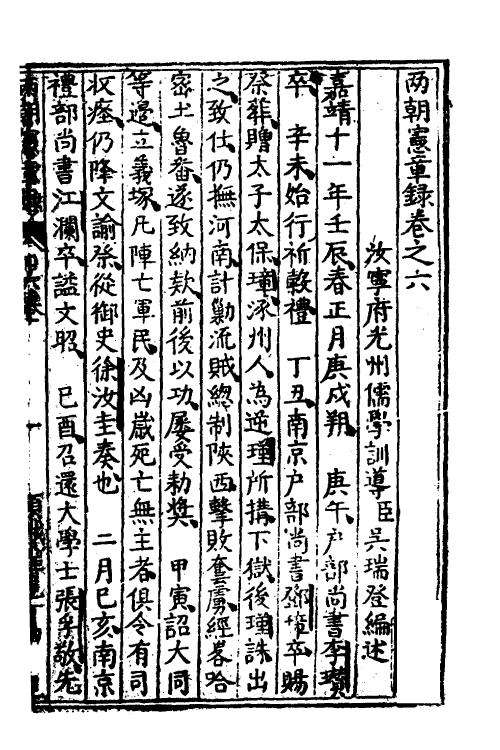 两朝憲章録卷之六
汝寧府光州儒學訓導臣吳瑞登編述
嘉靖十一年壬辰春正月庚戌朔　庚午户部尚書李瓚
卒　辛未始行祈穀禮　丁丑南京户部尚書鄧璋卒賜
祭葬贈太子太保璋涿州人為逆瑾所搆下獄後瑾誅出
之致仕仍撫河南計勦流賊總制陝西擊敗套虜經畧哈
密土魯番遂致納款前後以功屡受勑奬　甲寅詔大同
等邉立義塚凡陣亡軍民及凶嵗死亡無主者俱令有司
収瘞仍降文諭祭從御史徐汝圭奏也　二月巳亥南京
禮部尚書江瀾卒謚文昭　巳酉召還大學士張孚敬先